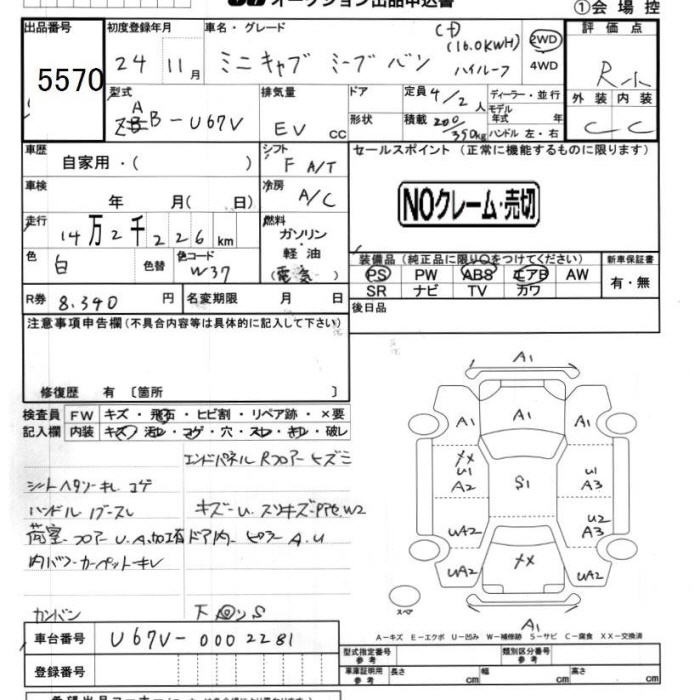 オークション出品申込書 ①会場控
出品番号 初度登録年月 車名・グレード 評価点
5570 24 年 11月 ミニキャブ ミーブ バン (16.0KWH) ハイルーフ 2WD 4WD R
型式 排気量 ドア 定員 4/2人 ディーラー・並行 外装 内装
ZAB-U67V EV CC 形状 積載 200/350kg モデル年式 年 ハンドル 左・右 C C
車歴 シフト セールスポイント (正常に機能するものに限ります)
自家用・( ) F A/T
車検 年 月( 日) 冷房 A/C NOクレーム・売切
走行 14万2千226km 燃料 ガソリン・軽油 (電気)
色 白 色替 色コード W37
装備品(純正品に限り○をつけてください) 新車保証書
PS PW ABS エアB AW 有・無
SR ナビ TV カワ
R券 8.340円 名変期限 月 日 後日品
注意事項申告欄(不具合内容等は具体的に記入して下さい)
修復歴 有 〔箇所 〕
検査員 FW キズ・飛石・ヒビ割・リペア跡・×要
記入欄 内装 キズ・汚レ・コゲ・穴・スレ・キレ・破レ
エンドパネル Rフロアー ヒズミ
シートヘタリ キレ コゲ
ハンドル
キズ U. スリキズ
荷室 フロアー U.A.加工有 ドア内 ピラー A.U
内バフ カーペットキレ
カンバン 下 S
A1
A1 A1 A1
XX
U1 U1
A2 S1 A3
U2
UA2 A3
UA2 XX UA2
スペア
A1
A-キズ E-エクボ U-凹み W-補修跡 S-サビ C-腐食 XX-交換済
車台番号 U67V-0002281
登録番号
型式指定番号 参考 類別区分番号 参考
車庫証明用 参考 長さ cm 幅 cm 高さ cm